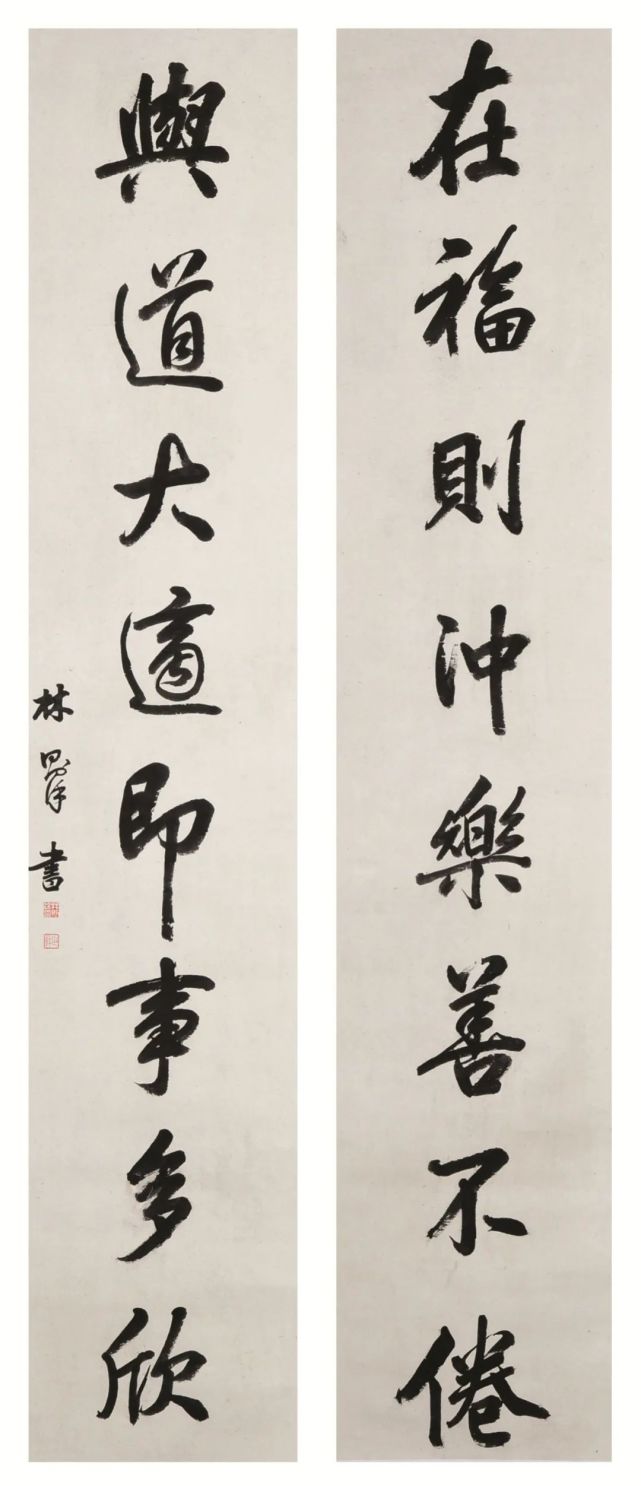 在福則沖樂善不倦
與道大適即事多欣
林則徐書